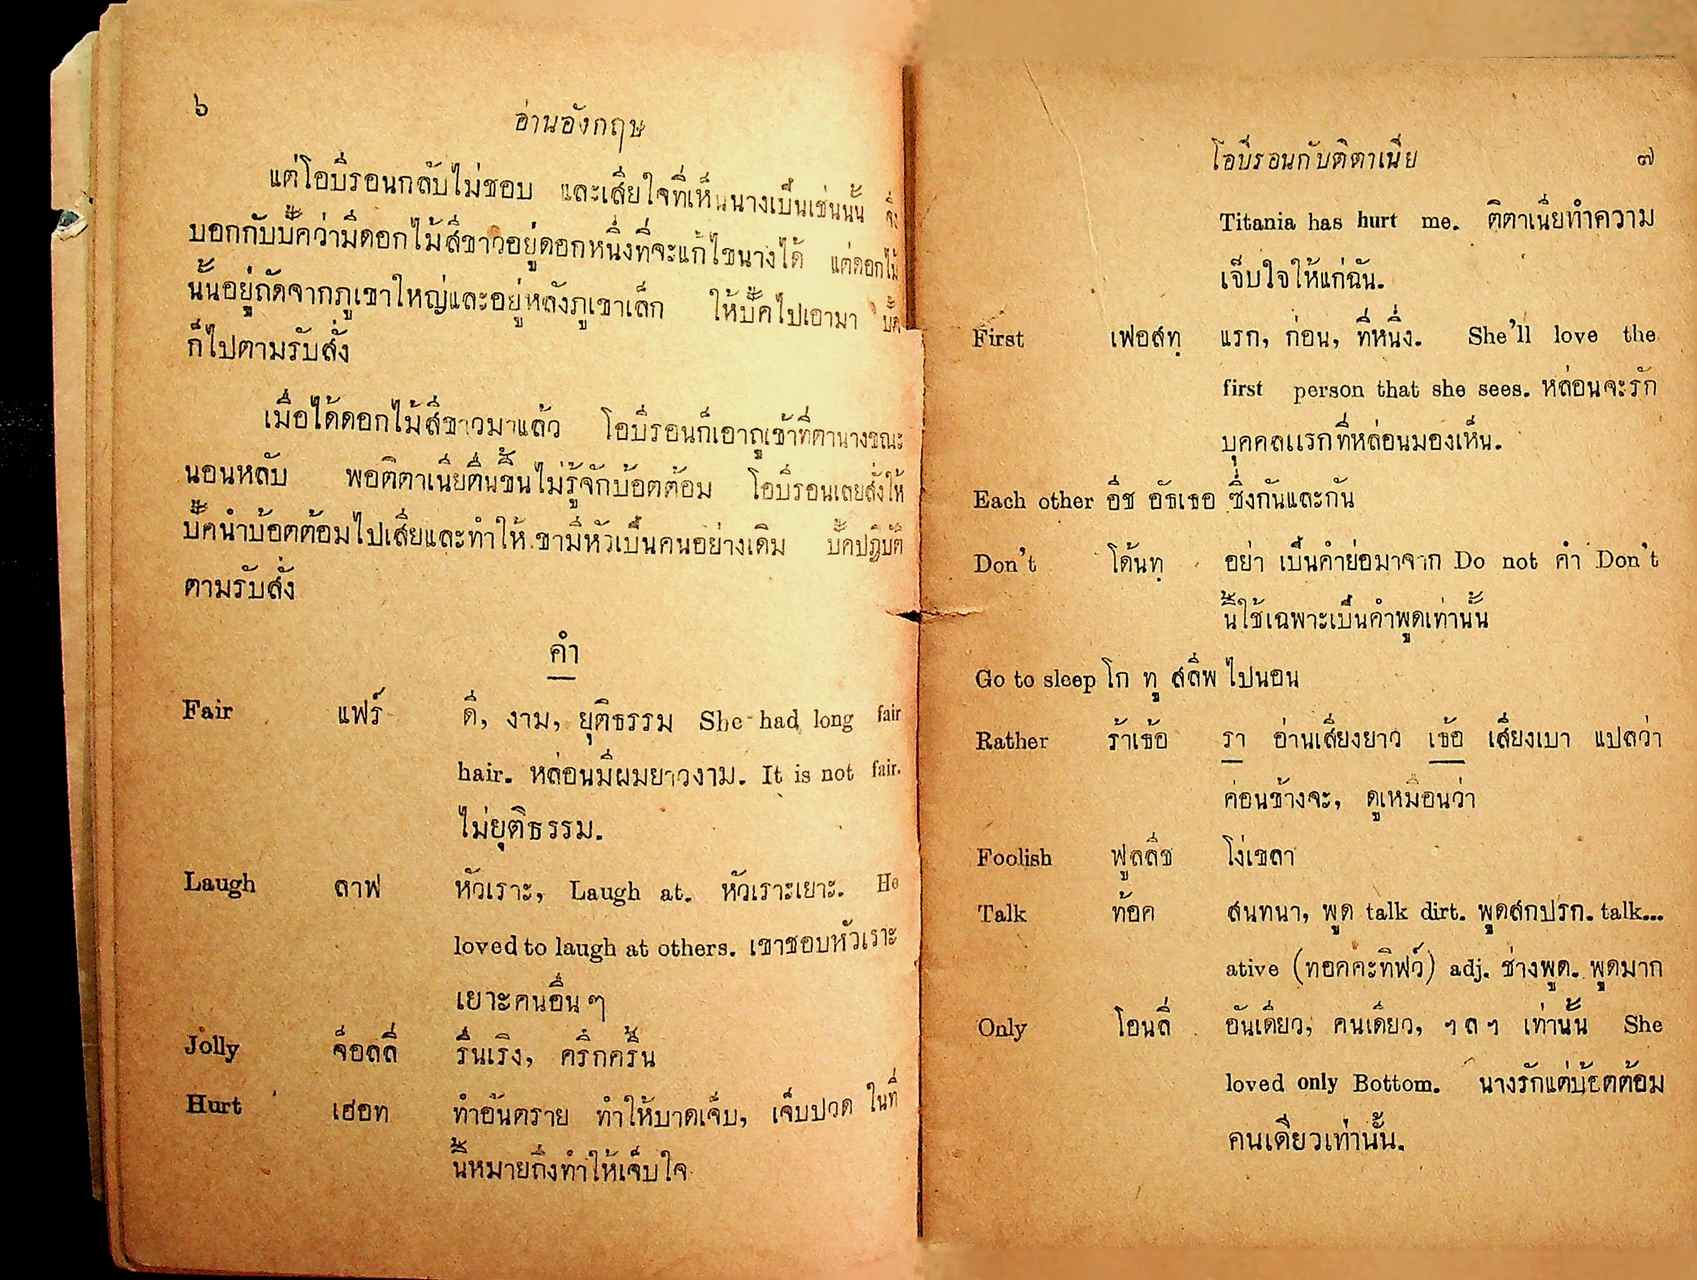 ๖
อ่านอังกฤษ
แต่โอบีรอนกลับไม่ชอบ และเสียใจที่เห็นนางเป็นเช่นนั้น จึง
บอกกับบั๊คว่ามีดอกไม้สีขาวอยู่ดอกหนึ่งที่จะแก้ไขนางได้ แต่ดอกไม้
นั้นอยู่ถัดจากภูเขาใหญ่และอยู่หลังภูเขาเล็ก ให้บั๊คไปเอามา บั๊ค
ก็ไปตามรับสั่ง
เมื่อได้ดอกไม้สีขาวมาแล้ว โอบีรอนก็เอาถูเข้าที่ตานางขณะ
นอนหลับ พอติตาเนียตื่นขึ้นไม่รู้จักบ้อตต้อม โอบีรอนเลยสั่งให้
บั๊คนำบ้อตต้อมไปเสียและทำให้เขามีหัวเป็นคนอย่างเดิม บั๊คปฏิบัติ
ตามรับสั่ง
คำ
Fair แฟร์ ดี, งาม, ยุติธรรม She had long fair
hair. หล่อนมีผมยาวงาม. It is not fair.
ไม่ยุติธรรม.
Laugh ลาฟ หัวเราะ, Laugh at. หัวเราะเยาะ. He
loved to laugh at others. เขาชอบหัวเราะ
เยาะคนอื่น ๆ
Jolly จ็อลลี่ รื่นเริง, ครึกครื้น
Hurt เฮอท ทำอันตราย ทำให้บาดเจ็บ, เจ็บปวด ในที่
นี้หมายถึงทำให้เจ็บใจ
โอบีรอนกับติตาเนีย
๗
Titania has hurt me. ติตาเนียทำความ
เจ็บใจให้แก่ฉัน.
First เฟอสทฺ แรก, ก่อน, ที่หนึ่ง. She'll love the
first person that she sees. หล่อนจะรัก
บุคคลแรกที่หล่อนมองเห็น.
Each other อีช อัธเธอ ซึ่งกันและกัน
Don't โด้นทฺ อย่า เป็นคำย่อมาจาก Do not คำ Don't
นี้ใช้เฉพาะเป็นคำพูดเท่านั้น
Go to sleep โก ทู สลีพ ไปนอน
Rather ร้าเธ้อ รา อ่านเสียงยาว เธ้อ เสียงเบา แปลว่า
ค่อนข้างจะ, ดูเหมือนว่า
Foolish ฟูลลีช โง่เขลา
Talk ท้อค สนทนา, พูด talk dirt. พูดสกปรก. talk...
ative (ทอคคะทิฟว์) adj. ช่างพูด. พูดมาก
Only โอนลี่ อันเดียว, คนเดียว, ฯ ล ฯ เท่านั้น She
loved only Bottom. นางรักแต่บ้อตต้อม
คนเดียวเท่านั้น.